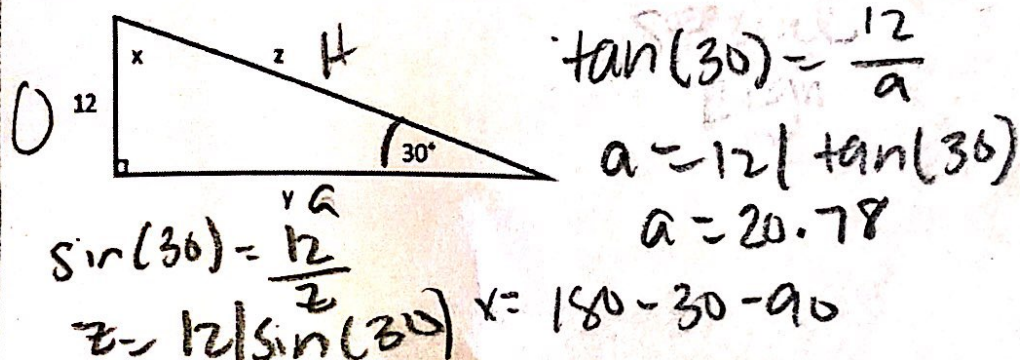 x
z H
O 12
30°
y a
tan(30) = 12/a
a = 12/tan(30)
a = 20.78
sin(30) = 12/z
z = 12/sin(30)
x = 180 - 30 - 90